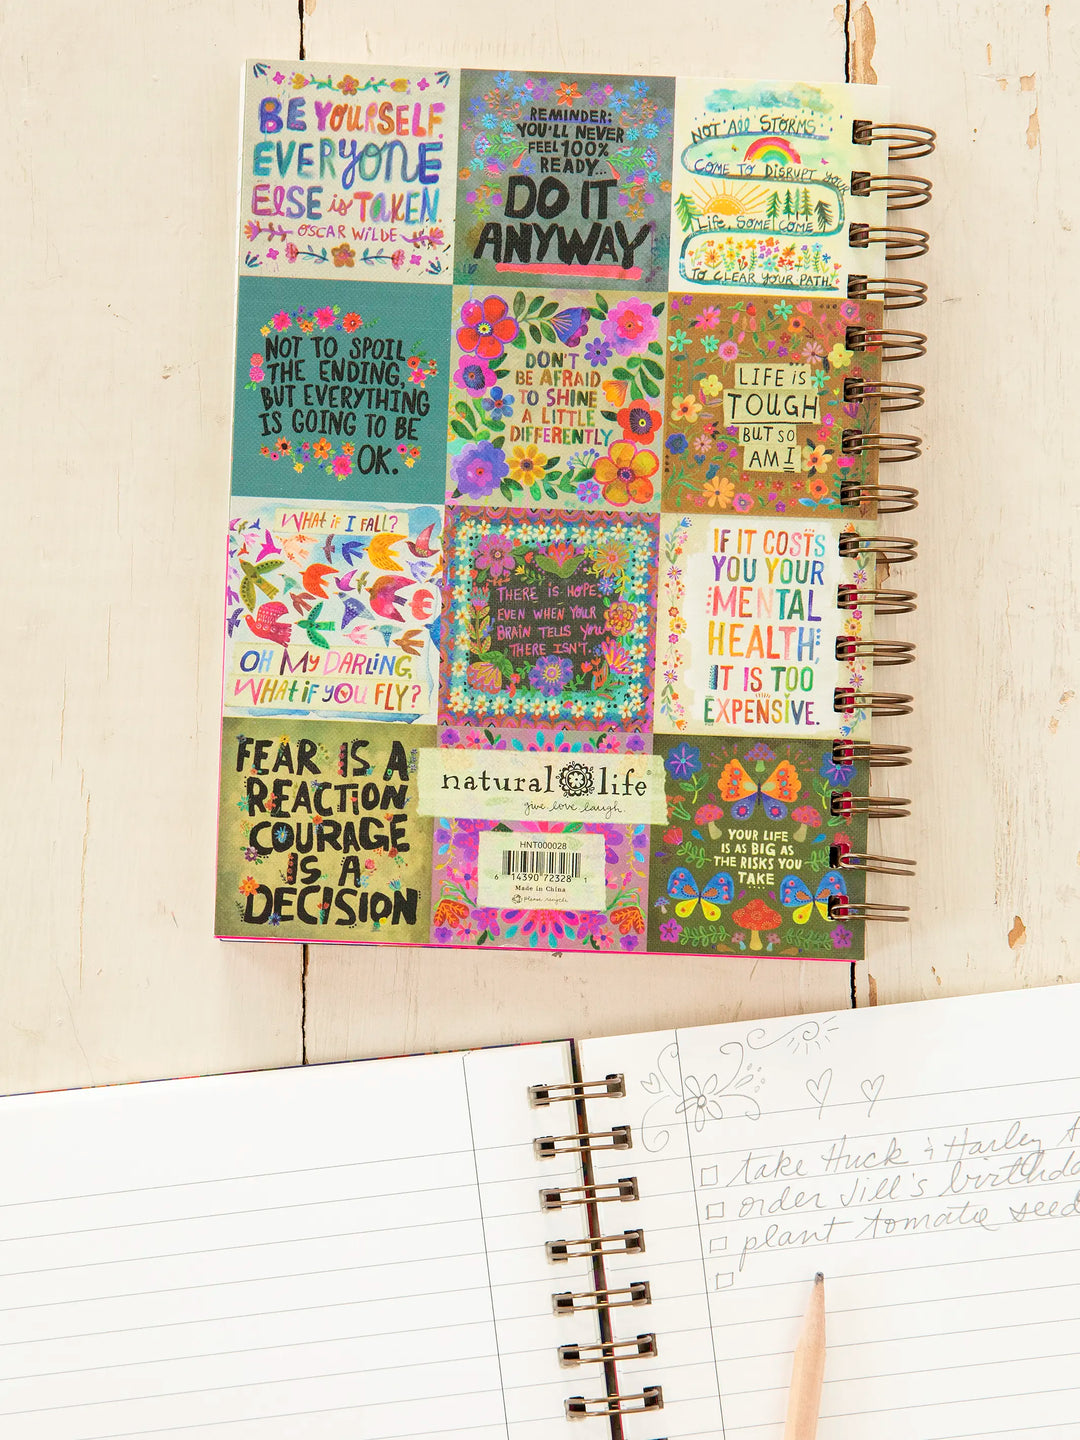 BE YOURSELF.
EVERYONE
ELSE is TAKEN.
OSCAR WILDE
REMINDER:
YOU'LL NEVER
FEEL 100%
READY...
DO IT
ANYWAY
NOT All STORMS
COME TO DISRUPT YOUR
Life, SOME COME
TO CLEAR YOUR PATH.
NOT TO SPOIL
THE ENDING,
BUT EVERYTHING
IS GOING TO BE
OK.
DON'T
BE AFRAID
TO SHINE
A LITTLE
DIFFERENTLY
LIFE is
TOUGH
BUT SO
AM I
WHAT iF I FALL?
OH MY DARLING,
WHAT iF YOU FLY?
THERE IS HOPE,
EVEN WHEN YOUR
BRAIN TELLS YOU
THERE ISN'T.
IF IT COSTS
YOU YOUR
MENTAL
HEALTH,
IT IS TOO
EXPENSIVE.
FEAR IS A
REACTION
COURAGE
IS A
DECISION
natural life®
give love laugh.
HNT000028
6 14390 72328 1
Made in China
please recycle
YOUR LIFE
IS AS BIG AS
THE RISKS YOU
TAKE
take Huck & Harley
order Jill's
plant tomato seed